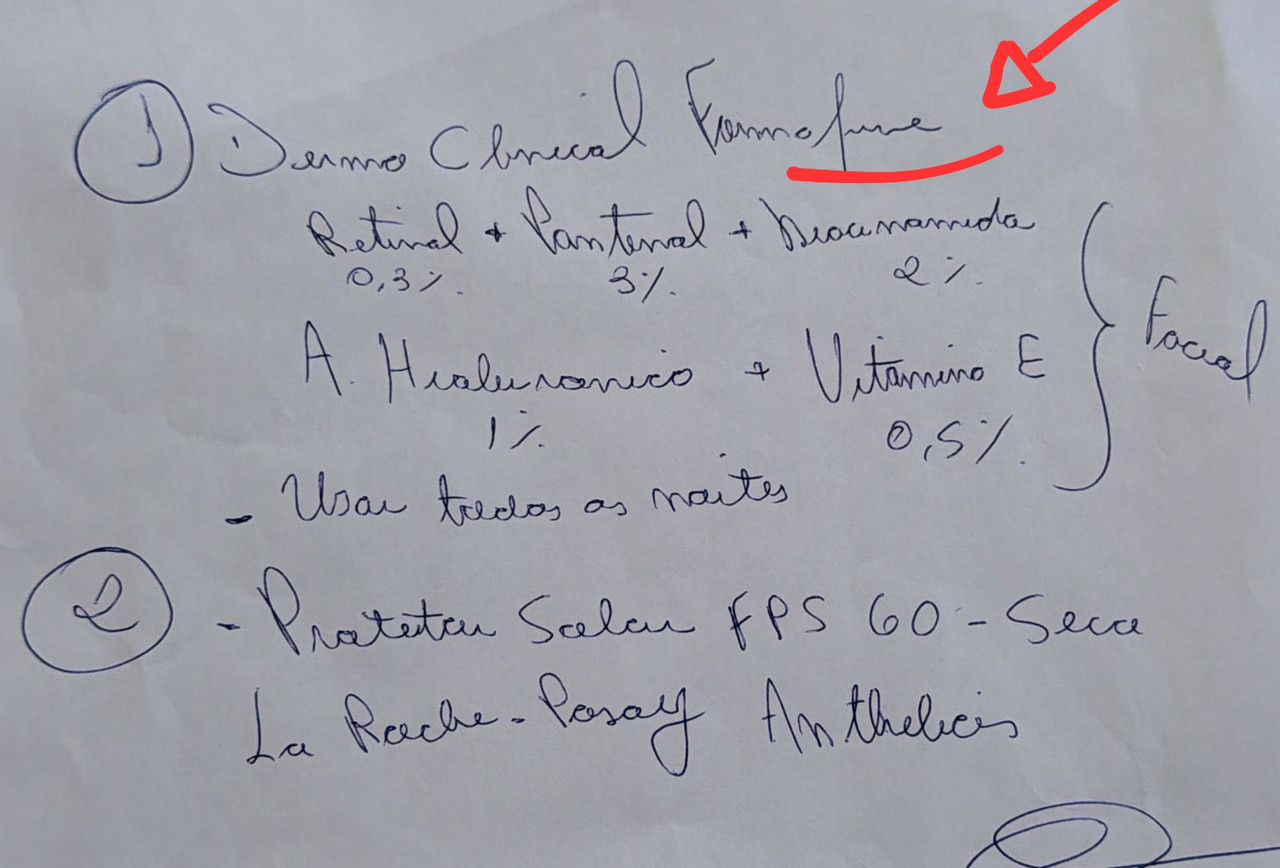 1 Dermo Clinical Farmofine
Retinal + Pantenal + Niacinamida
0,3%. 3%. 2%.
A. Hialuronico + Vitamina E
1%. 0,5%.
Facial
- Usar todas as noites
2 - Protetor Solar FPS 60 - Seca
La Roche-Posay Anthelios